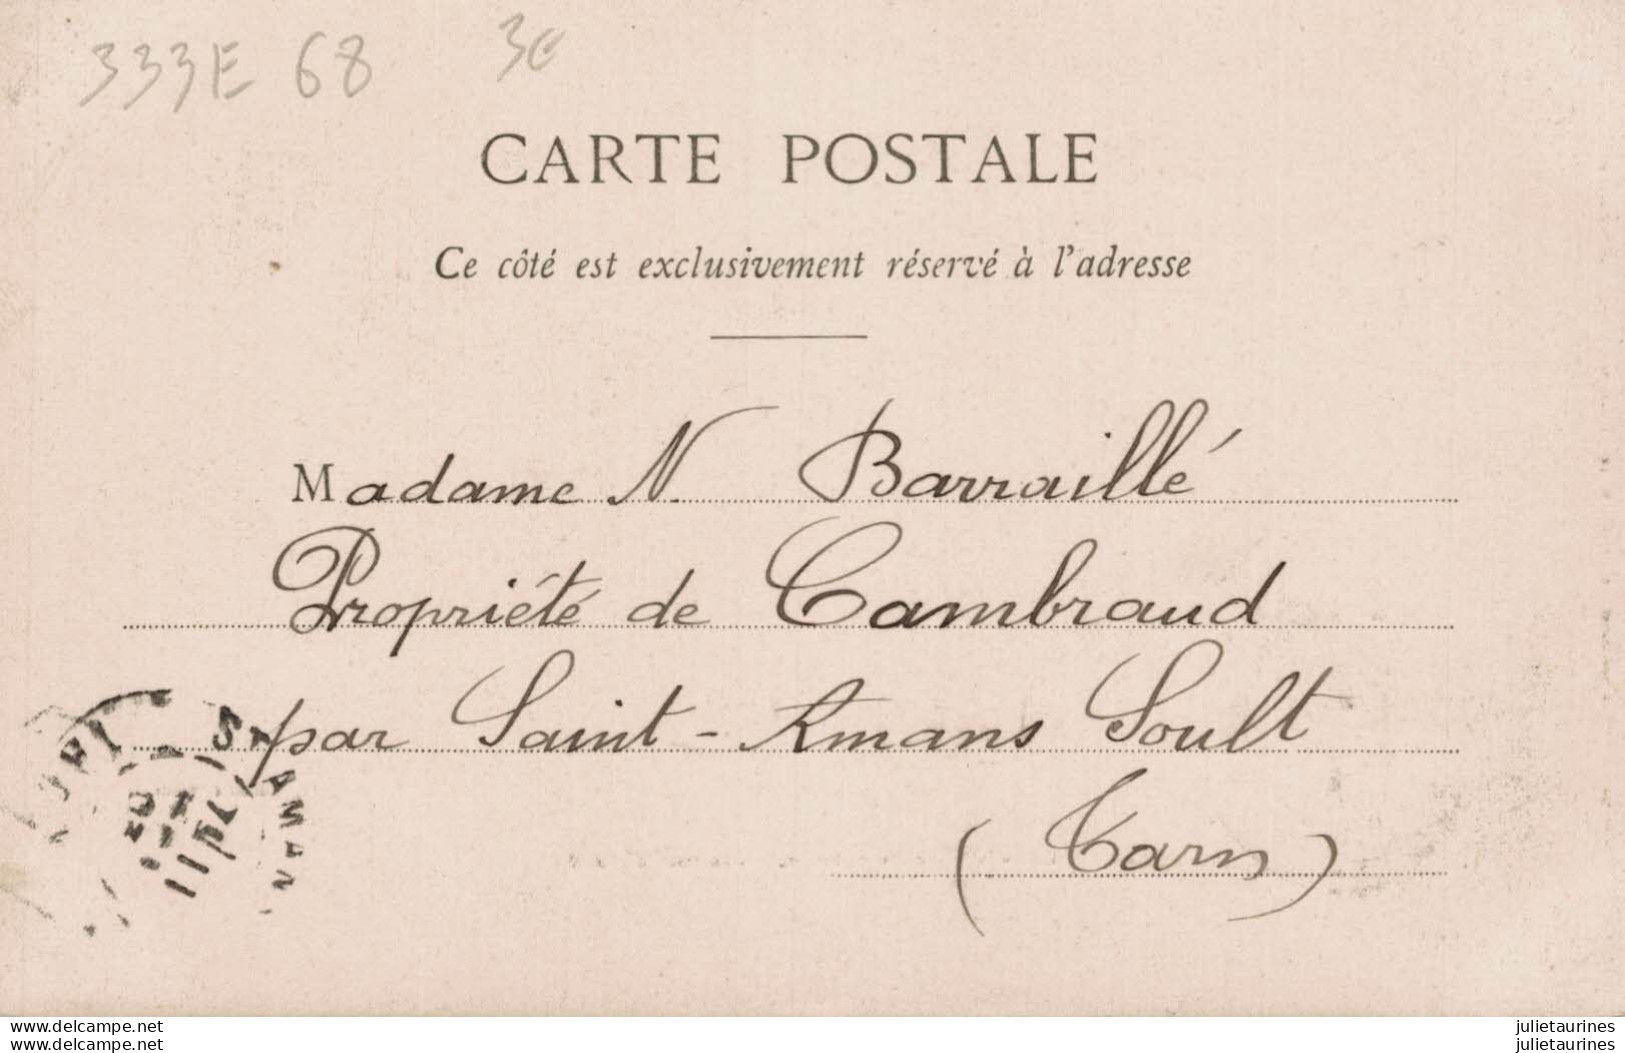 333E 68 3€
CARTE POSTALE
Ce côté est exclusivement réservé à l'adresse
Madame N. Barraillé
Propriété de Cambraud
par Saint-Amans Soult
(Tarn)
ST AMAN
www.delcampe.net
www.delcampe.net
julietaurines
julietaurines